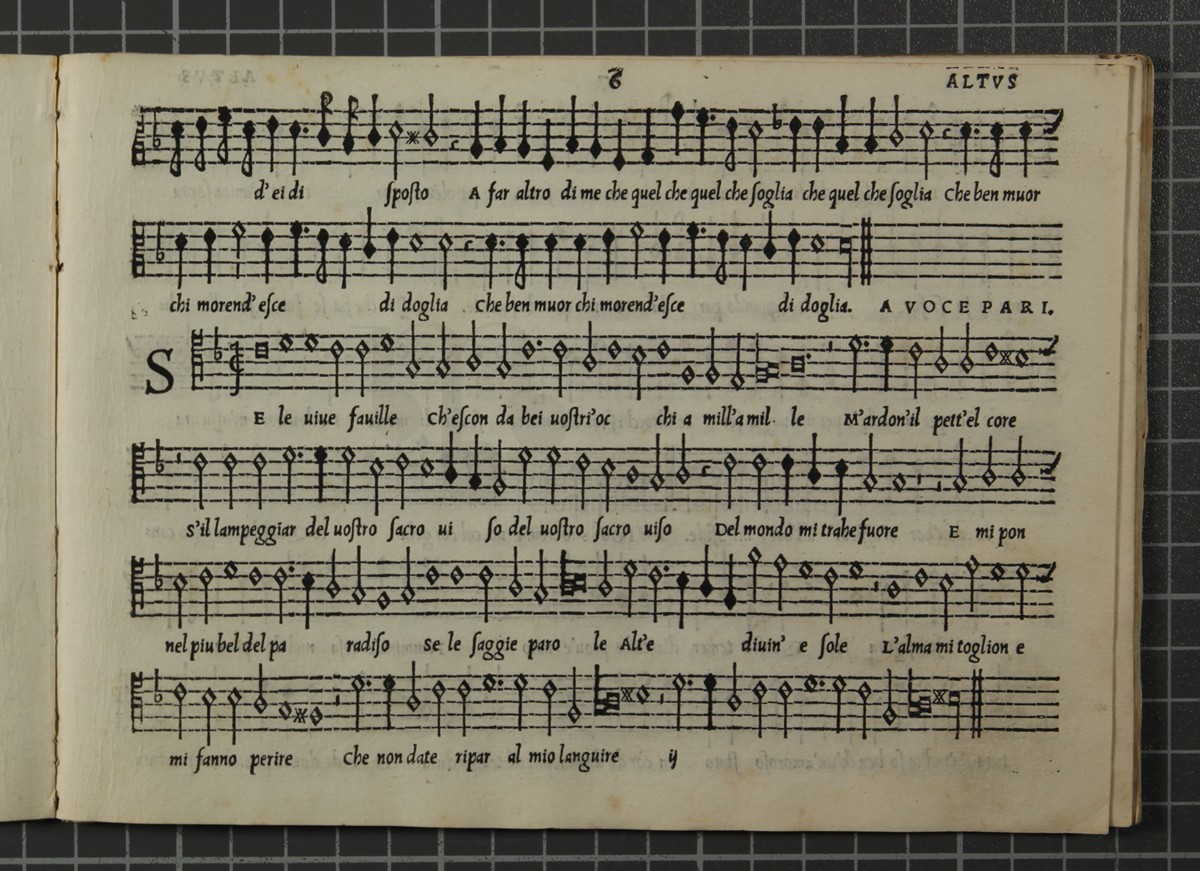 6 ALTVS
d'ei di ſpoſto A far altro di me che quel che quel che ſoglia che quel che ſoglia Che ben muor
chi morend'eſce di doglia Che ben muor chi morend'eſce di doglia. A VOCE PARI.
SE le uiue fauille Ch'eſcon da bei uoſtri'oc chi a mill'a mil le M'ardon'il pett'el core
S'il lampeggiar del uoſtro ſacro ui ſo del uoſtro ſacro uiſo Del mondo mi trahe fuore E mi pon
nel piu bel del pa radiſo Se le ſaggie paro le Alt'e diuin' e ſole L'alma mi toglion e
mi fanno perire Che non date ripar al mio languire ij